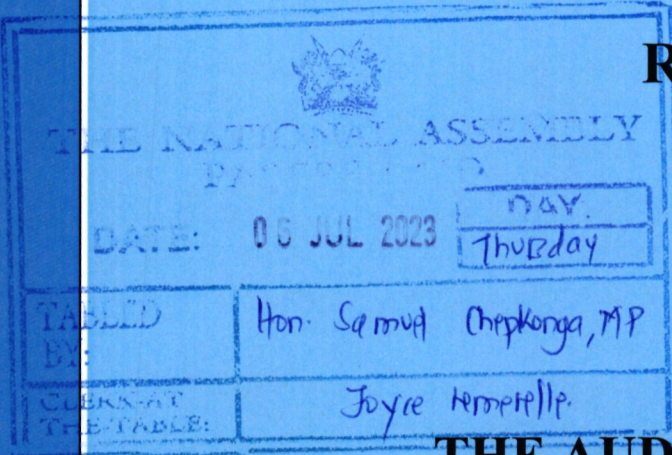 R
THE NATIONAL ASSEMBLY
PAPERS LAID
DATE: 06 JUL 2023
DAY.
Thursday
TABLED BY:
Hon. Samuel Chepkonga, MP
CLERK-AT THE-TABLE:
Joyce
THE AUD